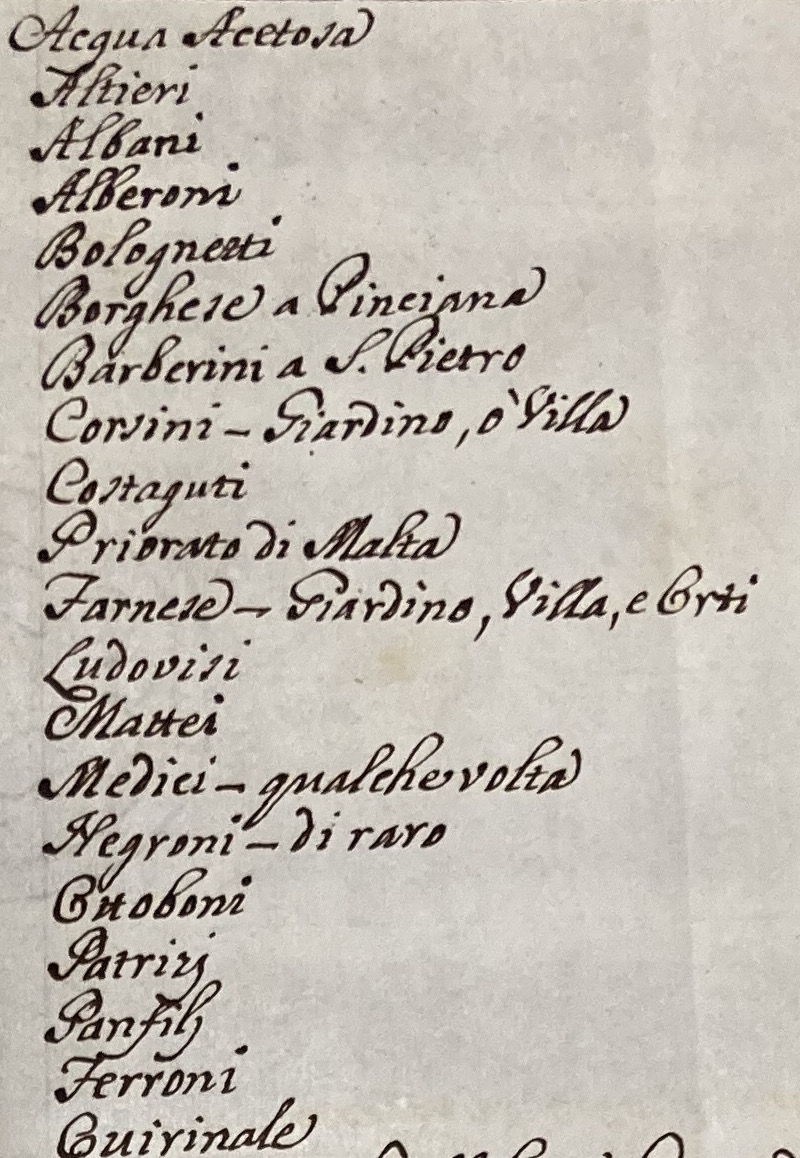 Acqua Acetosa
Altieri
Albani
Alberoni
Bolognetti
Borghese a Pinciana
Barberini a S. Pietro
Corsini - Giardino, ò Villa
Costaguti
Priorato di Malta
Farnese - Giardino, Villa, e Orti
Ludovisi
Mattei
Medici - qualche volta
Negroni - di raro
Ottoboni
Patrizj
Panfilj
Ferroni
Quirinale